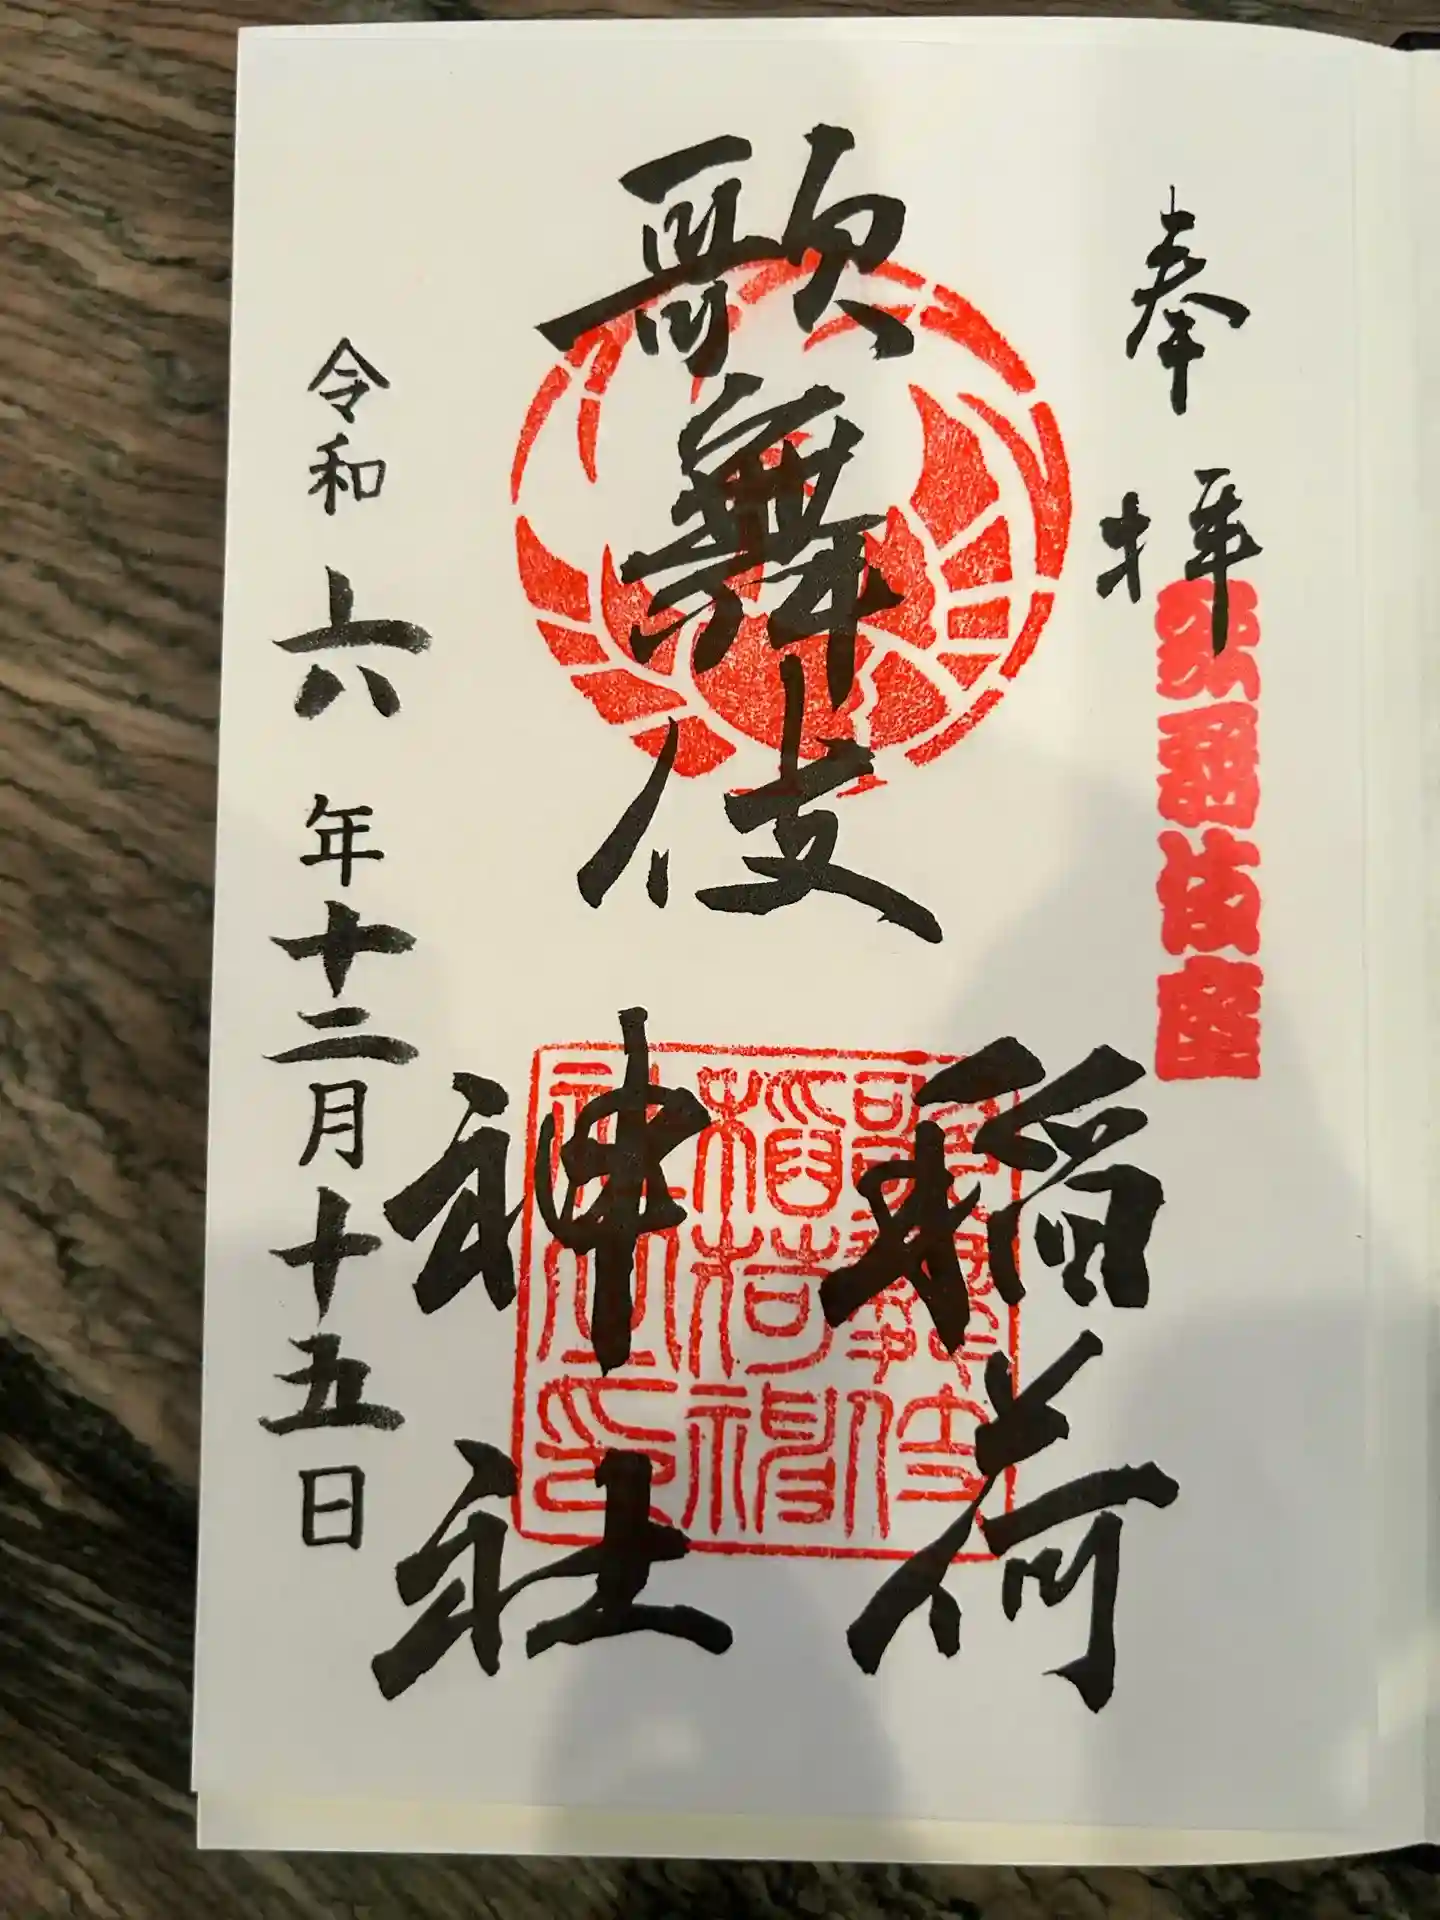 奉拝
歌舞伎座
歌舞伎
稲荷
神社
歌舞伎
稲荷神
社之印
令和六年十二月十五日